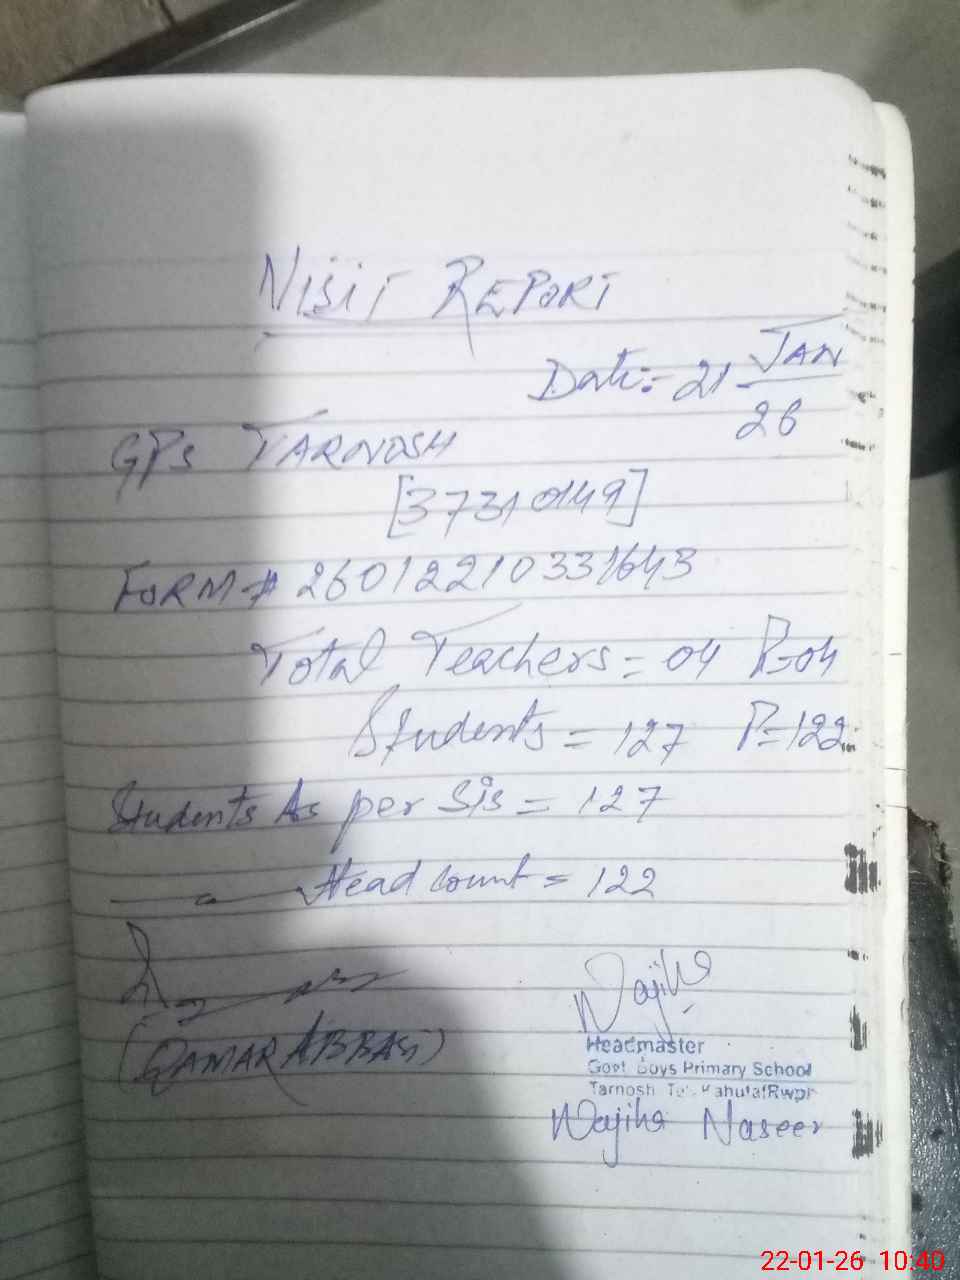 VISIT REPORT
Date:- 21 JAN
26
GPS TARNOSH
[37310149]
FORM # 26012210331643
Total Teachers = 04 P=04
Students = 127 P=122
Students As per Sis = 127
Head count = 122
(QAMAR ABBASI)
Wajiha
Headmaster
Govt Boys Primary School
Tarnosh Teh Kahuta(Rwp)
Wajiha Naseer
22-01-26 10:40